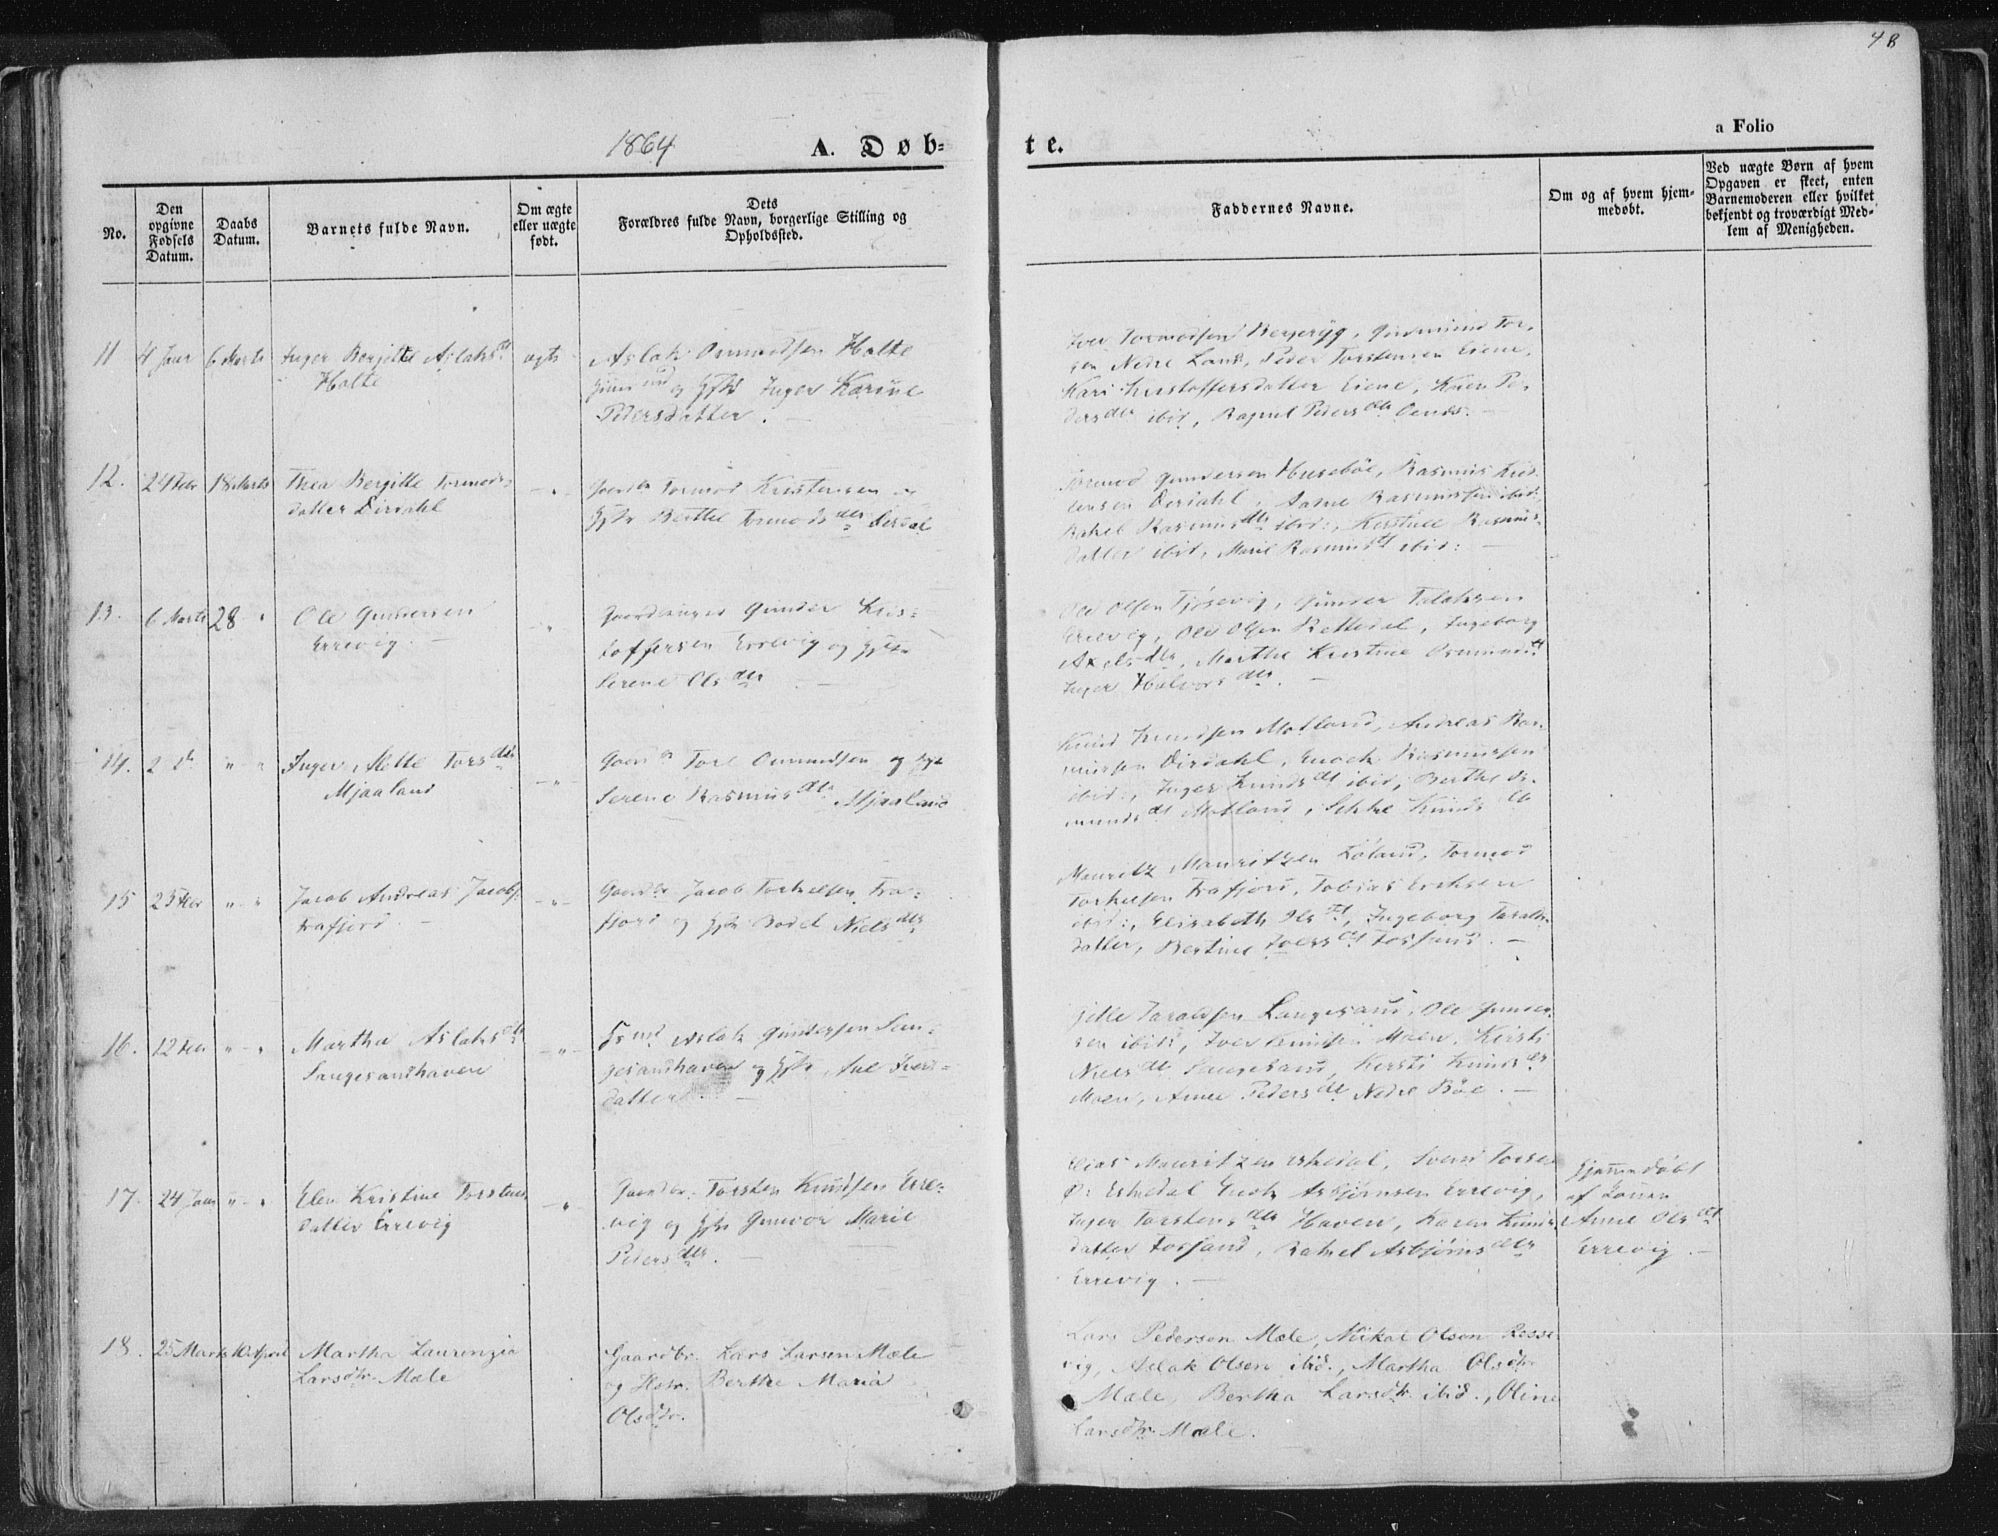 48
1864
A. Døb-
te.
a Folio
No.
Den opgivne Fødsels Datum.
Daabs Datum.
Barnets fulde Navn.
Om ægte eller uægte født.
Dets
Forældres fulde Navn, borgerlige Stilling og
Opholdssted.
Faddernes Navne.
Om og af hvem hjem-
medøbt.
Ved uægte Børn af hvem
Opgaven er skeet, enten
Barnemoderen eller hvilket
bekjendt og troværdigt Med-
lem af Menigheden.
11 4 Janr 6 Marts Inger Bergitte Aslaksdt
Holte
ægte
Aslak Osmundsen Holte
og Inger Karine
Pedersdatter.
Iver Tormodsen Bergeryg, Gudmund Tor-
sen Nedre Land, Peder Torstensen Eiene,
Kari Kristoffersdatter Eiene, Karen Pe-
dersdtr ibid, Ragnil Pedersdtr
12. 24 Febr 18 Marts Thea Bergitte Tormods-
datter Dirdahl
Gaardbr Tormod Kristensen og
Hstr Berthe Tormodsdtr Dirdal
Tormod Gundersen Husebøe, Rasmus Kris-
tensen Dirdahl, Aane Rasmussen ibid,
Rakel Rasmusdtr ibid:, Kirstine Rasmus-
datter ibid, Marie Rasmusdt ibid:
13. 6 Marts 28 "
Ole Gundersen
Errevig.
Gaardmand Gunder Kris-
toffersen Errevig og Hstr
Serene Olsdtr
Ole Olsen Tjøsevig, Gunder Talaksen
Errevig, Ole Olsen Rettedal, Ingeborg
Axelsdtr, Marthe Kristine Osmundsdt
Inger Halvorsdtr.
14. 2 " " Inger Mette Torsdtr
Mjaaland
Gaardbr Tore Osmundsen og
Serene Rasmusdtr Mjaaland
Knud Knudsen Motland, Andreas Ras-
mussen Dirdahl, Enock Rasmussen
ibid:, Inger Knudsdt ibid, Berthe Os-
mundsdt Motland, Sikke Knudsdtr
15 25 Febr " " Jacob Andreas Jacobs.
Frafjord
Gaardbr Jacob Torkelsen Fra-
fjord og Hstr Bodel Nielsdtr
Mauritz Mauritzen Løland, Tormod
Torkelsen Frafjord, Tobias Eriksen
ibid:, Elisabeth Olsdt, Ingeborg Taralds-
datter, Bertine Iversdt Fossand.
16. 12 Febr " " Martha Aslaksdtr
Langesandhaven
Aslak Gundersen Lan-
gesandhaven og Hstr Ane Ivers-
datter
Taraldsen Langesand, Ole Gunder-
sen ibid:, Iver Knudsen Moen, Kirsti
Nielsdtr Langesand, Kersti Knudsdtr
Moen, Anne Pedersdt Nedre Bøe.
17. 24 Janr " " Elen Kristine Torstens-
datter Errevig
Gaardbr. Torsten Knudsen Erre-
vig og Hstr Gunvor Marie
Pedersdtr.
Elias Mauritzen Eskedal, Svend
Eskedal, Enok Asbjørnsen Errevig,
Inger Torstensdtr Haven, Karen Knuds-
datter Fossand, Rakel Asbjørnsdtr
Errevig.
Hjemmedøbt
af Konen
Anne Olsdt
Errevig.
18. 25 Marts 10 April Martha Laurenzia
Larsdtr. Mæle
Gaardbr. Lars Larsen Mæle
og Hstr. Berthe Maria
Olsdtr.
Lars Pedersen Mæle, Mikal Olsen Rosse-
vig, Aslak Olsen ibid., Martha Olsdtr.
Mæle, Bertha Larsdtr. ibid., Oline
Larsdtr. Mæle.